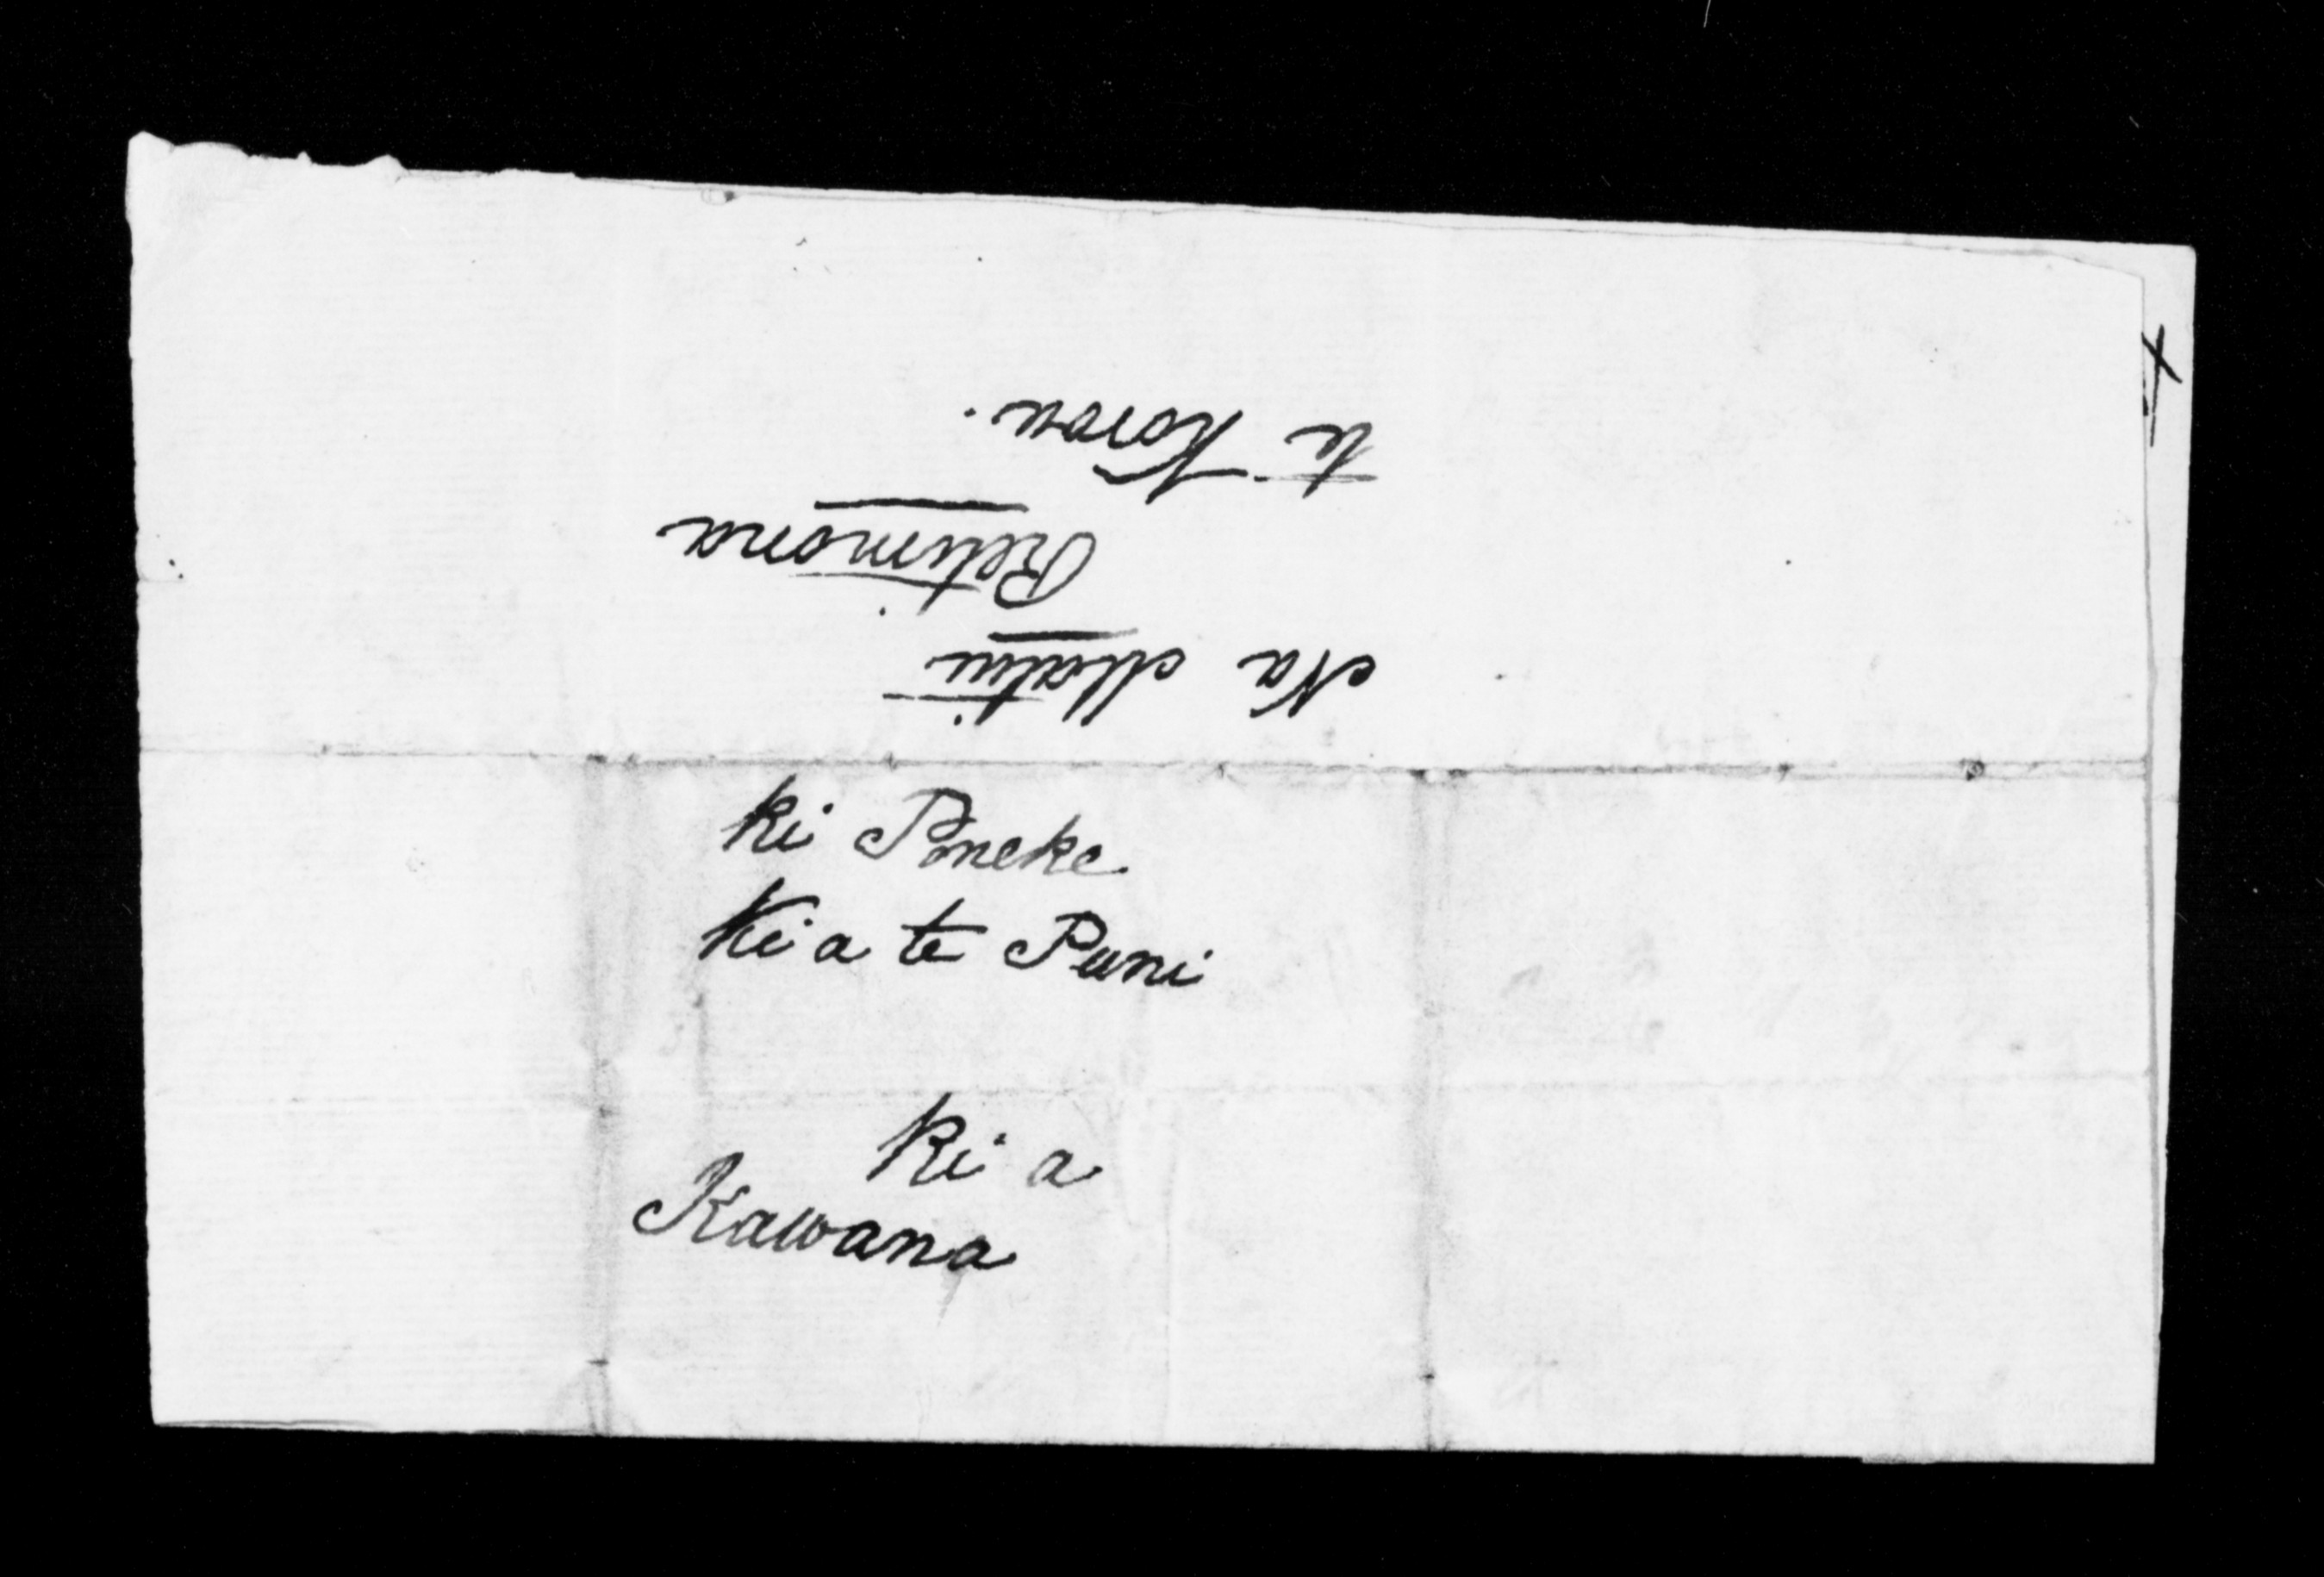 Na Matiu
Retimona
te Korou.
ki Poneke
Ki a te Puni
ki a
Kawana